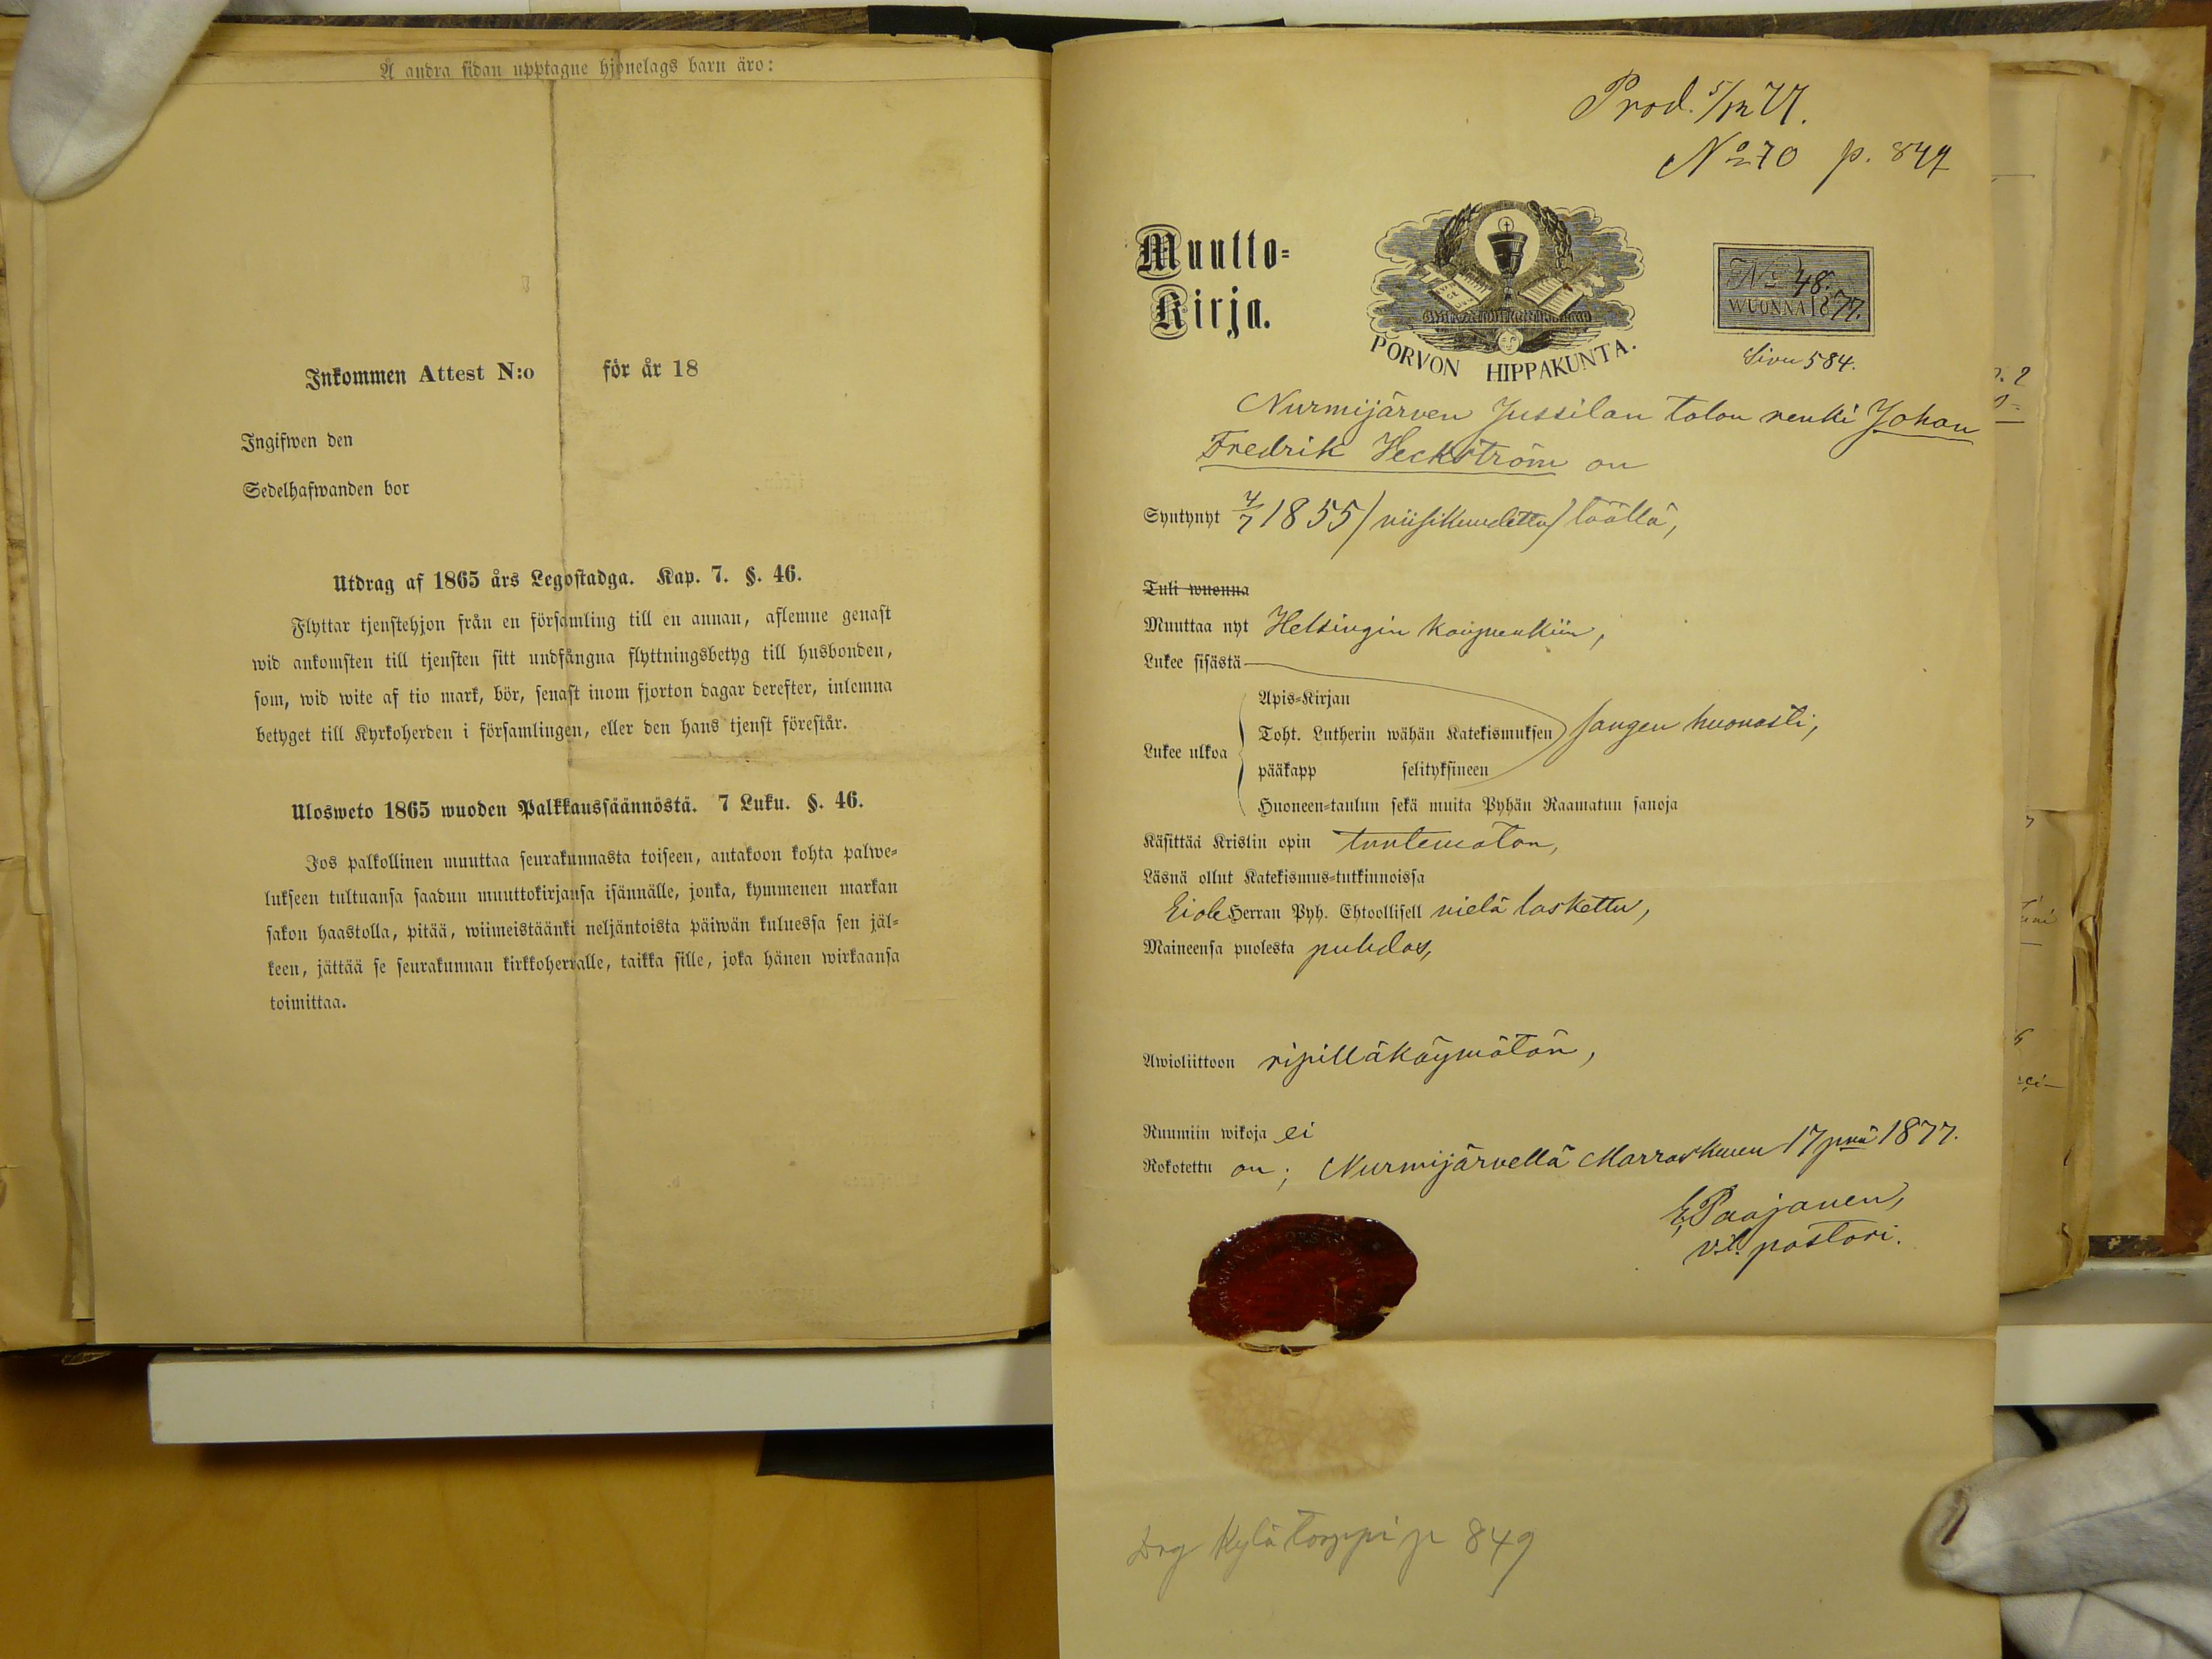 Å andra sidan upptagne hjonelags barn äro:
Inkommen Attest N:o för år 18
Ingifwen den
Sedelhafwanden bor
Utdrag af 1865 års Legostadga. Kap. 7. §. 46.
Flyttar tjenstehjon från en församling till en annan, aflemne genast
wid ankomsten till tjensten sitt undfångna flyttningsbetyg till husbonden,
som, wid wite af tio mark, bör, senast inom fjorton dagar derefter, inlemna
betyget till Kyrkoherden i församlingen, eller den hans tjenst förestår.
Ulosweto 1865 wuoden Palkkaussäännöstä. 7 Luku. §. 46.
Jos palkollinen muuttaa seurakunnasta toiseen, antakoon kohta palwe=
lukseen tultuansa saadun muuttokirjansa isännälle, jonka, kymmenen markan
sakon haastolla, pitää, wiimeistäänki neljäntoista päiwän kuluessa sen jäl=
keen, jättää se seurakunnan kirkkoherralle, taikka sille, joka hänen wirkaansa
toimittaa.
Prod. 5/12 77.
No 70 p. 849
Muutto=
Kirja.
PORVON HIPPAKUNTA.
No 48.
WUONNA 1877.
Sivu 584.
Nurmijärven Jussilan talon renki Johan
Fredrik Heckström on
Syntynyt 4/7 1855 / viisikuudetta / täällä,
Tuli wuonna
Muuttaa nyt Helsingin kaupunkiin,
Lukee sisästä
Apis=Kirjan
Toht. Lutherin wähän Katekismuksen sangen huonosti,
Lukee ulkoa
pääkapp selityksineen
Huoneen=taulun sekä muita Pyhän Raamatun sanoja
Käsittää Kristin opin tuntematon,
Läsnä ollut Katekismus=tutkinnoissa
Ei ole Herran Pyh. Ehtoollisell vielä laskettu,
Maineensa puolesta puhdas,
Awioliittoon ripilläkäymätön,
Ruumiin wikoja ei
Rokotettu on; Nurmijärvellä Marraskuun 17 pnä 1877.
E. Paajanen,
v.t. pastori.
Drg Kylätorppi p 849